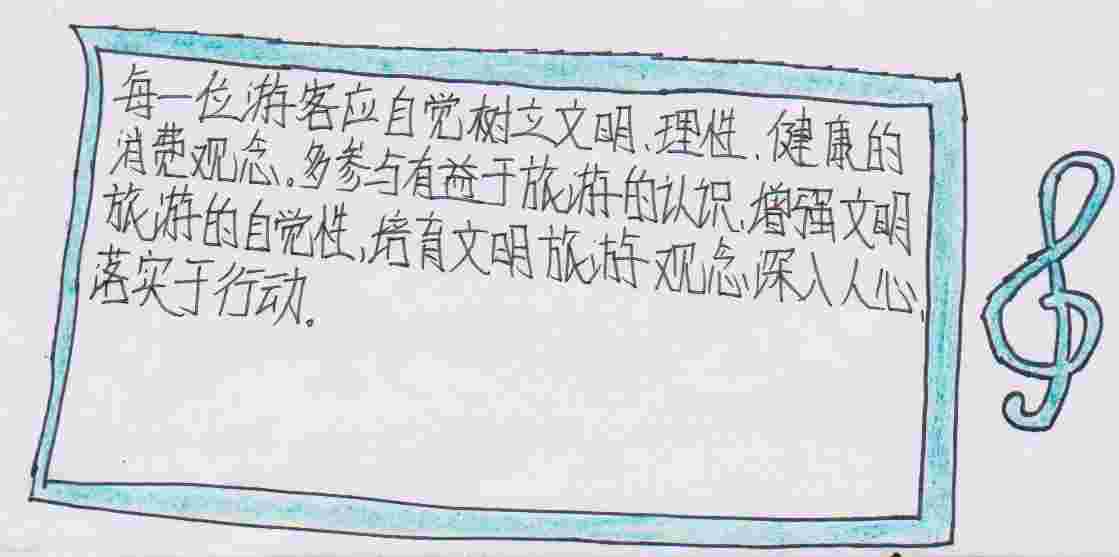 每一位游客应自觉树立文明、理性、健康的
消费观念。多参与有益于旅游的认识,增强文明
旅游的自觉性,培育文明旅游观念深入人心,
落实于行动。